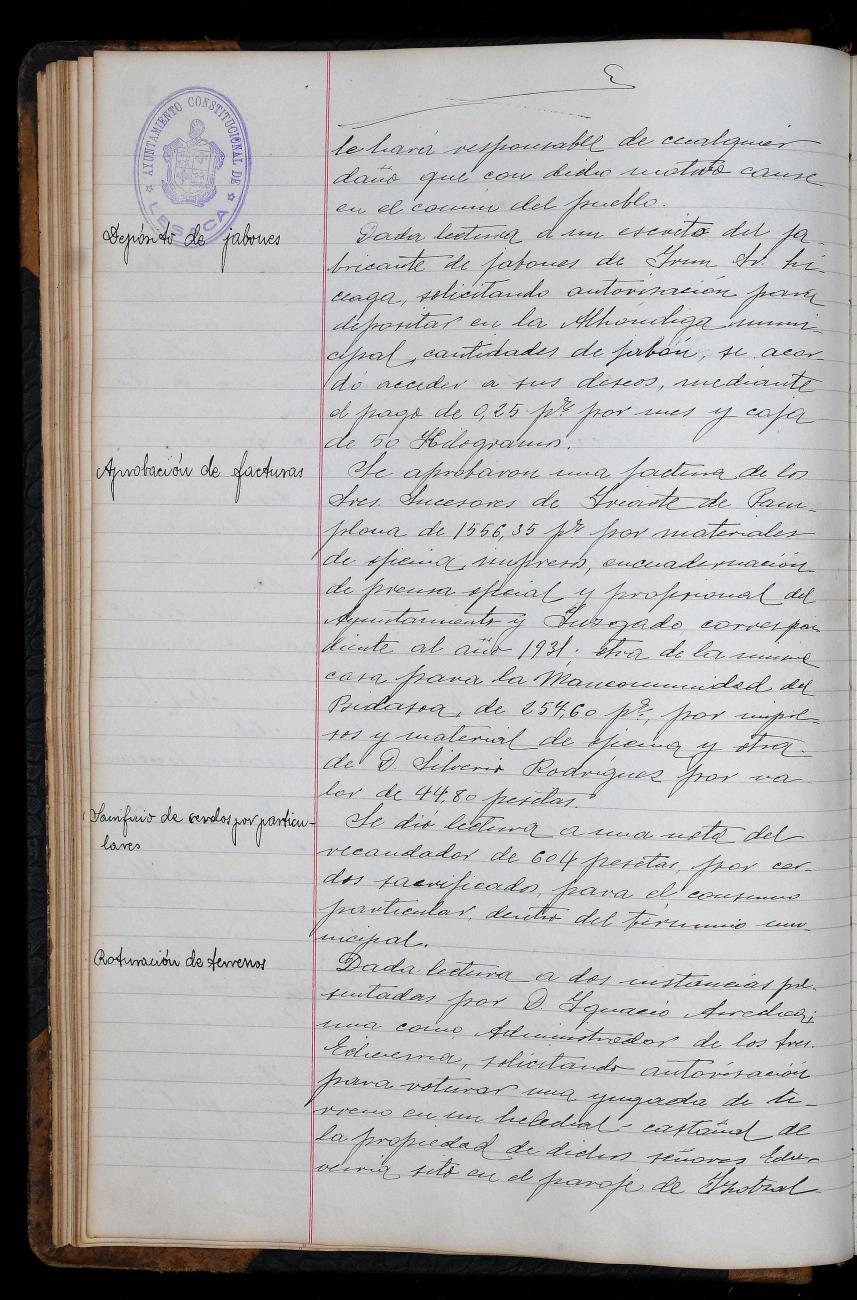 AYUNTAMIENTO CONSTITUCIONAL DE
LESACA
le hará responsable de cualquier
daño que con dicho motivo cause
en el comun del pueblo.
Depósito de jabones
Dada lectura a un escrito del fa-
bricante de jabones de Irun Sr. Li-
ceaga, solicitando autorisación para
depositar en la Alhondiga muni-
cipal, cantidades de jabón, se acor-
dó acceder a sus deseos, mediante
el pago de 0,25 pts por mes y caja
de 50 Kilogramos.
Aprobación de facturas
Se aprobaron una factura de los
Sres. Sucesores de Iriarte de Pam-
plona de 1556,35 pts por materiales
de oficina, impresos, encuadernación
de prensa oficial y profesional del
Ayuntamiento y Juzgado correspon
diente al año 1931; otra de la misma
casa para la Mancomunidad del
Bidasoa, de 254,60 pts, por impre-
sos y material de oficina y otra
de D. Silverio Rodríguez por va
lor de 44,80 pesetas.
Sacrificio de cerdos por particu-
lares
Se dió lectura a una nota del
recaudador de 604 pesetas, por cer-
dos sacrificados, para el consumo
particular, dentro del término mu-
nicipal.
Roturación de terrenos
Dada lectura a dos instancias pre-
sentadas por D. Ignacio
una como Administrador de los Sres.
Echeverria, solicitando autorisación
para roturar una yugada de te-
rreno en un helechal-castañal de
la propiedad de dichos señores Eche-
verria sito en el paraje de